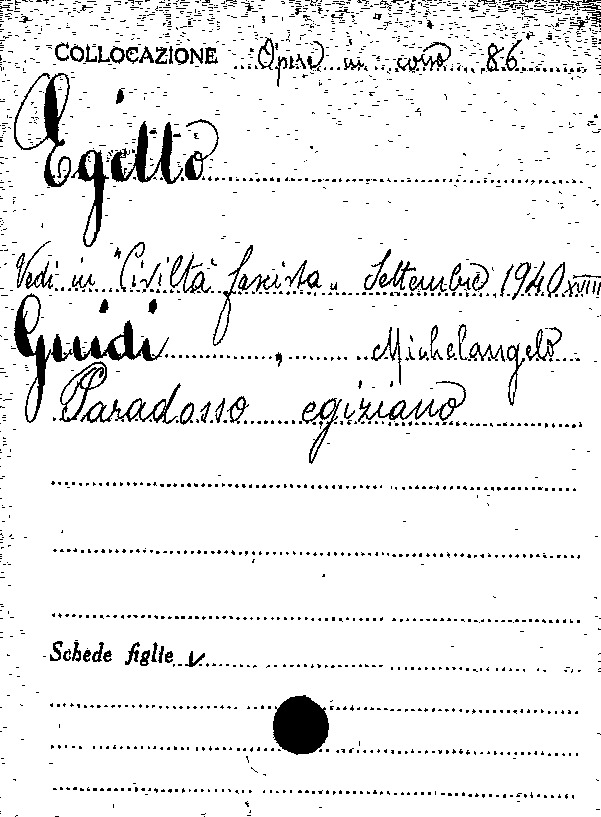 COLLOCAZIONE Opere in corso 86
Egitto
Vedi in "Civiltà fascista" Settembre 1940 XVIII
Guidi, Michelangelo
Paradosso egiziano
Schede figlie v